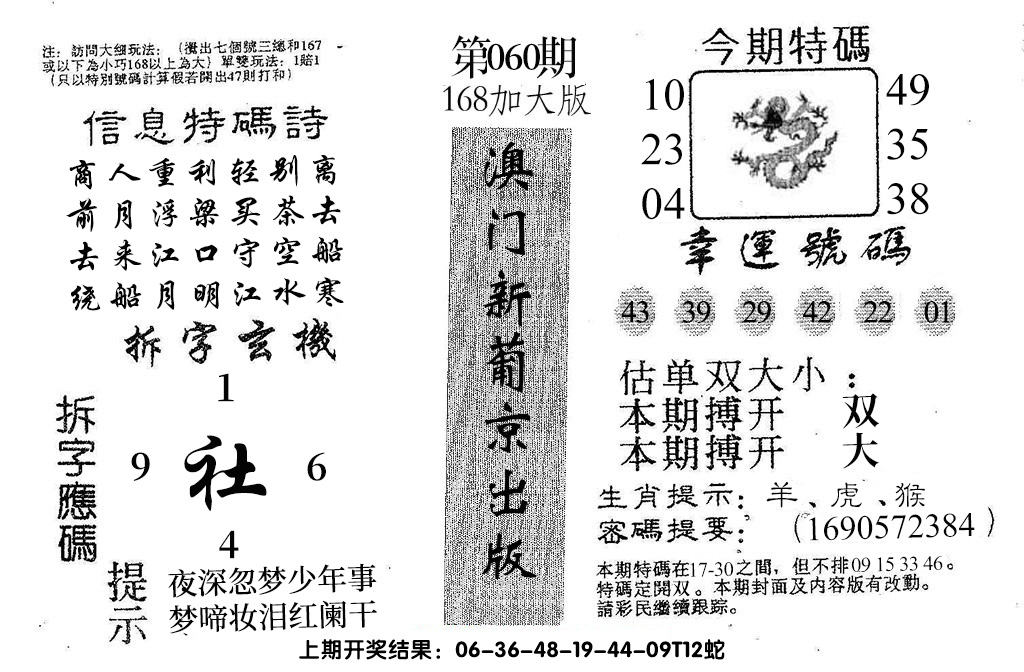 注：訪問大细玩法：（攪出七個號三總和167
或以下為小巧168以上為大）單雙玩法：1賠1
（只以特別號碼計算假若開出47則打和）
信息特碼詩
商人重利轻别离
前月浮梁买茶去
去来江口守空船
绕船月明江水寒
拆字玄機
拆字應碼
1
9 社 6
4
提示
夜深忽梦少年事
梦啼妆泪红阑干
第060期
168加大版
澳门新葡京出版
今期特碼
10 49
23 35
04 38
幸運號碼
43 39 29 42 22 01
估单双大小：
本期搏开 双
本期搏开 大
生肖提示：羊、虎、猴
密碼提要：（1690572384）
本期特碼在17-30之間，但不排09 15 33 46。
特碼定開双。本期封面及内容版有改動。
請彩民繼續跟踪。
上期开奖结果：06-36-48-19-44-09T12蛇